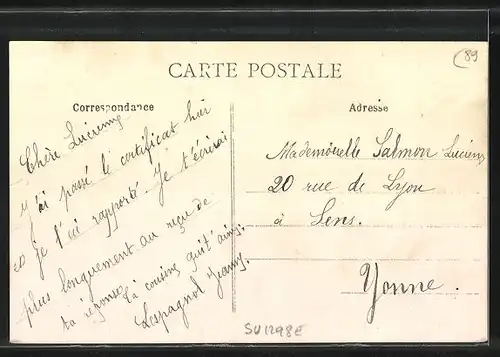 89
CARTE POSTALE
Correspondance
Adresse
Chère Lucienne
j'ai passé le certificat hier
et je l'ai rapporté. Je t'écrirai
plus longuement au reçu de
ta réponse
ta cousine qui t'aime.
Lespagnol Jeanne.
Mademoiselle Salmon Lucienne
20 rue de Lyon
à Sens.
Yonne.
SU1298E